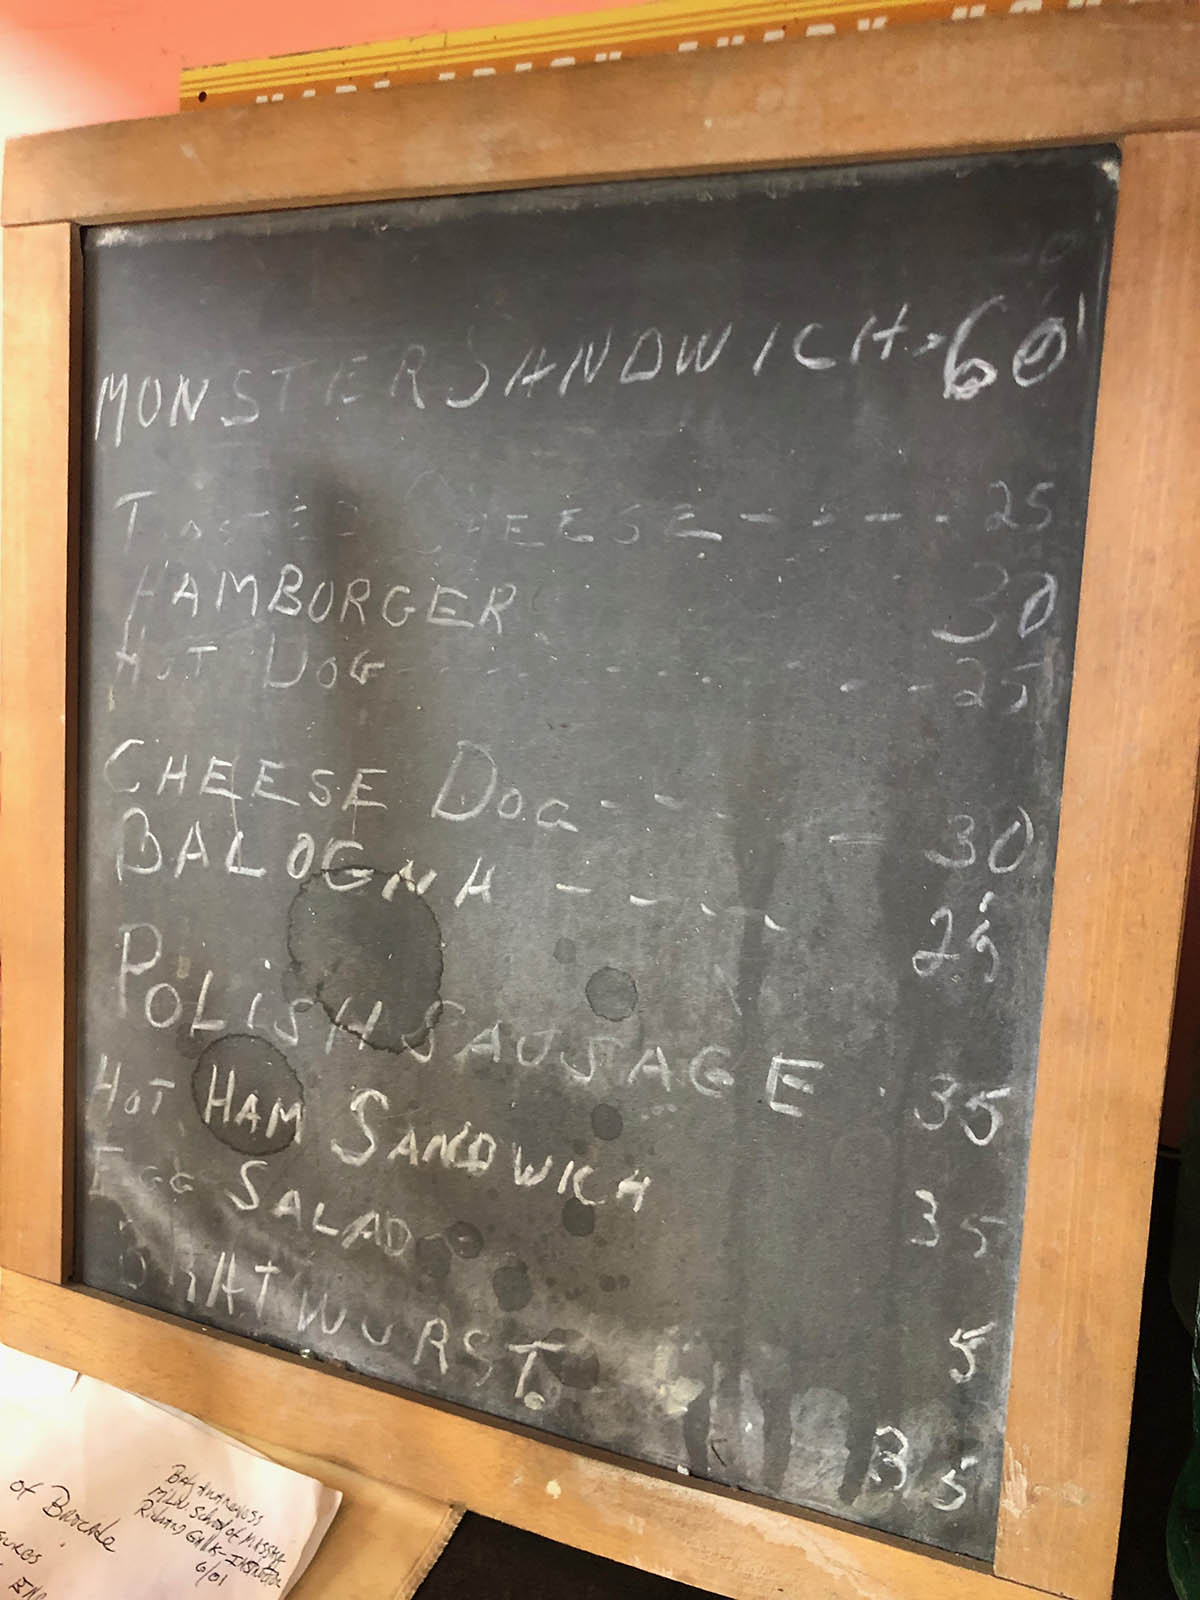 MONSTER SANDWICH - 60
TOASTED CHEESE - - - - - 25
HAMBURGER 30
HOT DOG - - - - - - - - 25
CHEESE DOG - - - - 30
BALOGNA - - - - 25
POLISH SAUSAGE . 35
HOT HAM SANDWICH 35
EGG SALAD 5
BRATWURST 35
of Brocade
MILW. School of MASSAGE
Richard GALK - INSTRUCTOR
6/01